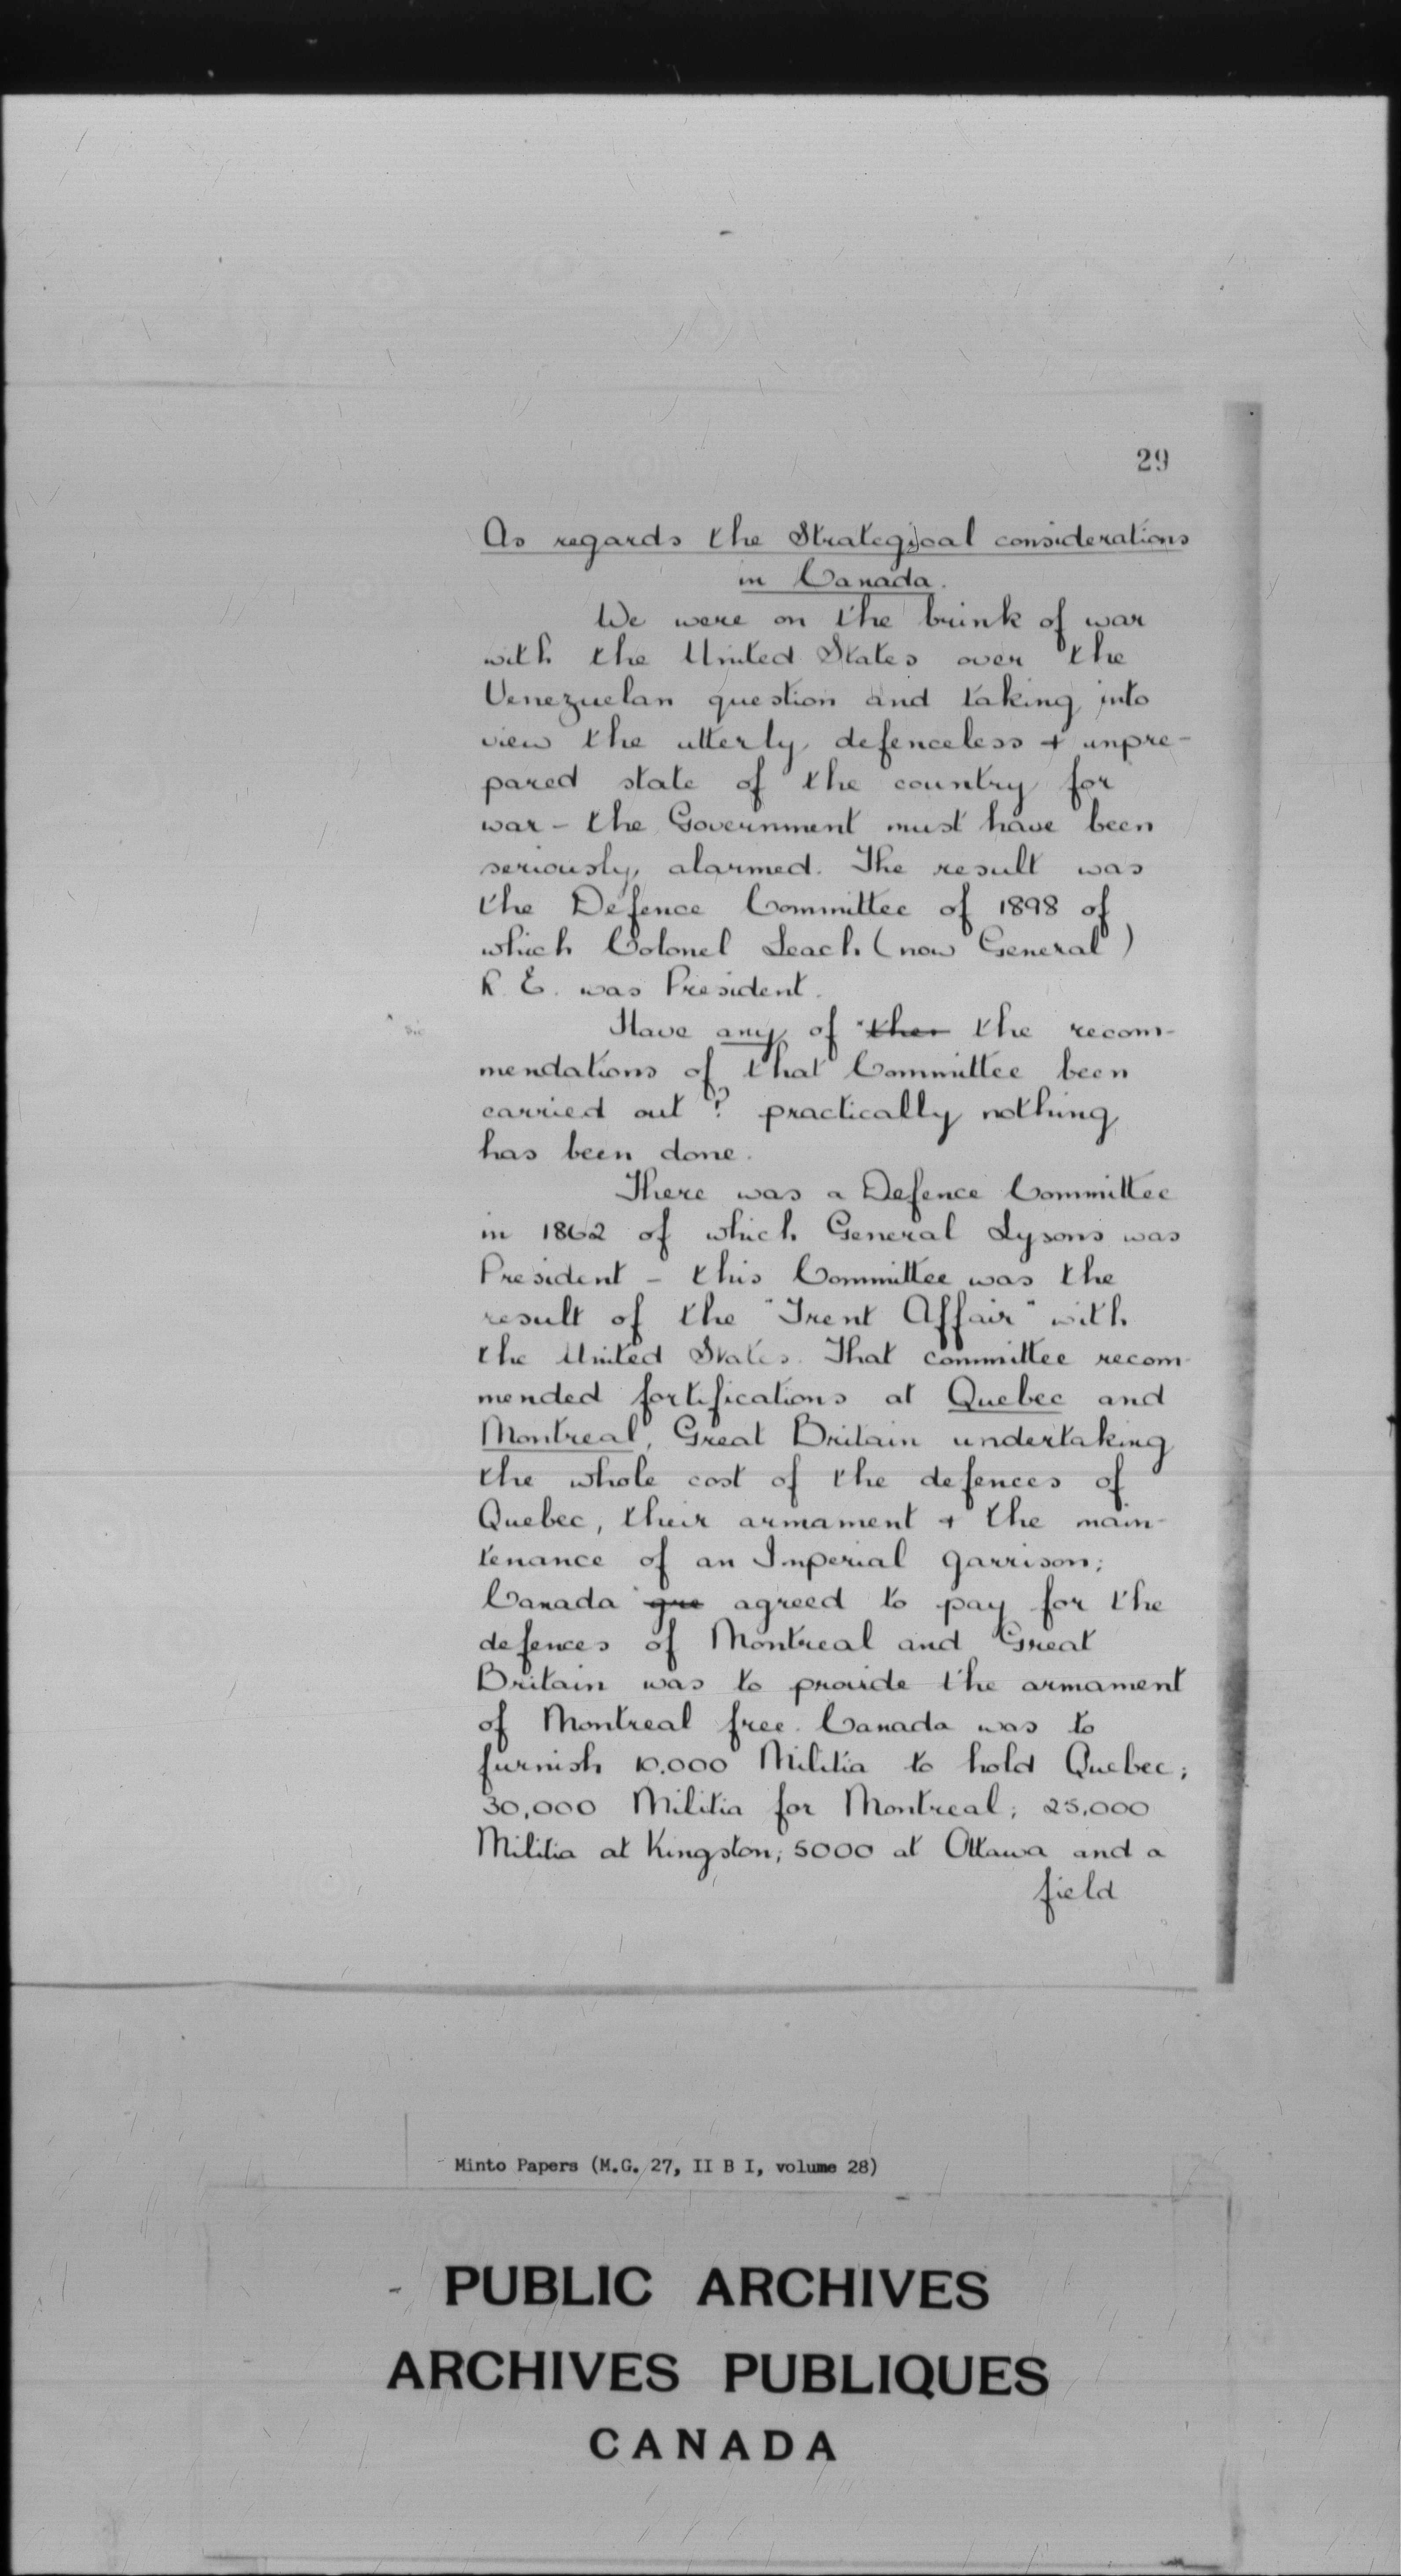 29
As regards the Strategical considerations
in Canada.
We were on the brink of war
with the United States over the
Venezuelan question and taking into
view the utterly defenceless + unpre-
pared state of the country for
war - the Government must have been
seriously alarmed. The result was
the Defence Committee of 1898 of
which Colonel Leach (now General)
R. E. was President.
Have any of ther the recom-
mendations of that Committee been
carried out? practically nothing
has been done.
There was a Defence Committee
in 1862 of which General Lysons was
President - this Committee was the
result of the "Trent Affair" with
the United States. That committee recom-
mended fortifications at Quebec and
Montreal, Great Britain undertaking
the whole cost of the defences of
Quebec, their armament + the main-
tenance of an Imperial garrison;
Canada gre agreed to pay for the
defences of Montreal and Great
Britain was to provide the armament
of Montreal free. Canada was to
furnish 10,000 Militia to hold Quebec;
30,000 Militia for Montreal; 25,000
Militia at Kingston; 5000 at Ottawa and a
field
Minto Papers (M.G. 27, II B I, volume 28)
PUBLIC ARCHIVES
ARCHIVES PUBLIQUES
CANADA